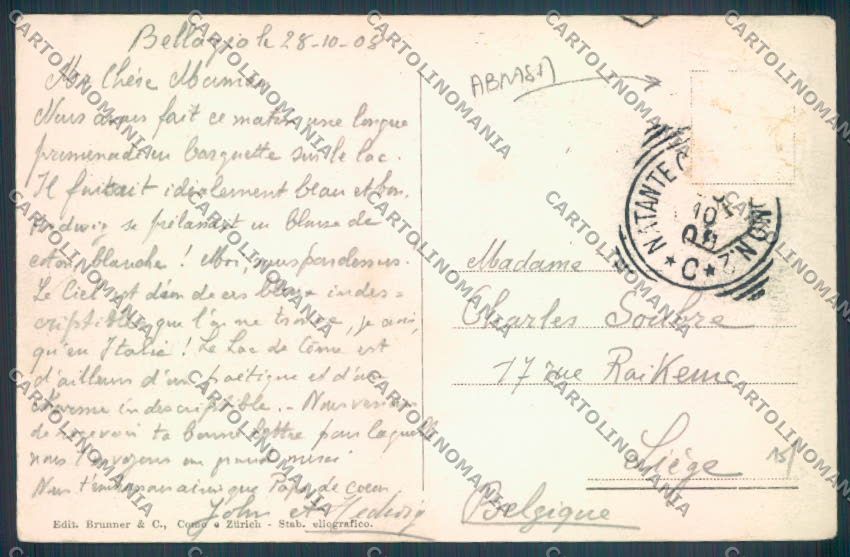 Bellagio le 28-10-08
Ma Chère Maman
Nous avons fait ce matin une longue
promenade en barquette sur le lac.
Il faisait idéalement beau et bon.
Hedwig se prélassait en blouse de
coton blanche ! Moi, sans pardessus.
Le Ciel est d'un de ces bleus indes-
criptibles que l'on ne trouve,
qu'en Italie ! Le Lac de Côme est
d'ailleurs d'un poétique et d'un
charme indescriptible. - Nous venons
de recevoir ta bonne lettre pour laquelle
nous t'envoyons un grand merci
Nous t'embrassons ainsi que Papa de coeur
John et Hedwig
Edit. Brunner & C., Como e Zürich - Stab. eliografico.
ABRASA
NATANTE
10
08
* C *
N. 2
Madame
Charles Soubre
17 rue Raikem
Liège
Belgique
CARTOLINOMANIA